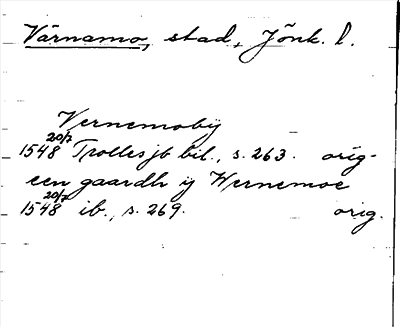 Värnamo, stad, Jönk. l.
Vernemoby
20/7
1548 Trolles jb bil., s. 263. orig.
een gaardh ij Wernemoe
20/7
1548 ib., s. 269. orig.